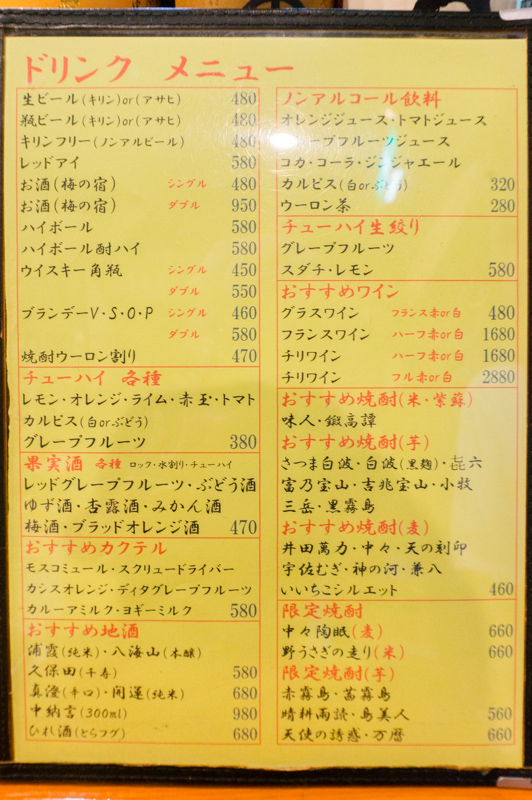 ドリンク メニュー
生ビール(キリン)or(アサヒ) 480
瓶ビール(キリン)or(アサヒ) 480
キリンフリー(ノンアルビール) 480
レッドアイ 580
お酒(梅の宿) シングル 480
お酒(梅の宿) ダブル 950
ハイボール 580
ハイボール酎ハイ 580
ウイスキー角瓶 シングル 450
ダブル 550
ブランデーV・S・O・P シングル 460
ダブル 580
焼酎ウーロン割り 470
チューハイ 各種
レモン・オレンジ・ライム・赤玉・トマト
カルピス(白orぶどう)
グレープフルーツ 380
果実酒 各種 ロック・水割り・チューハイ
レッドグレープフルーツ・ぶどう酒
ゆず酒・杏露酒・みかん酒
梅酒・ブラッドオレンジ酒 470
おすすめカクテル
モスコミュール・スクリュードライバー
カシスオレンジ・ディタグレープフルーツ
カルーアミルク・ヨギーミルク 580
おすすめ地酒
浦霞(純米)・八海山(本醸)
久保田(千寿) 580
真澄(辛口)・開運(純米) 680
中納言(300ml) 980
ひれ酒(とらフグ) 680
ノンアルコール飲料
オレンジジュース・トマトジュース
グレープフルーツジュース
コカ・コーラ・ジンジャエール
カルピス(白orぶどう) 320
ウーロン茶 280
チューハイ生絞り
グレープフルーツ
スダチ・レモン 580
おすすめワイン
グラスワイン フランス赤or白 480
フランスワイン ハーフ赤or白 1680
チリワイン ハーフ赤or白 1680
チリワイン フル赤or白 2880
おすすめ焼酎(米・紫蘇)
味人・鍛高譚
おすすめ焼酎(芋)
さつま白波・白波(黒麹)・㐂六
富乃宝山・吉兆宝山・小牧
三岳・黒霧島
おすすめ焼酎(麦)
井田萬力・中々・天の刻印
宇佐むぎ・神の河・兼八
いいちこシルエット 460
限定焼酎
中々陶眠(麦) 660
野うさぎの走り(米) 660
限定焼酎(芋)
赤霧島・茜霧島
晴耕雨読・島美人 560
天使の誘惑・万暦 660